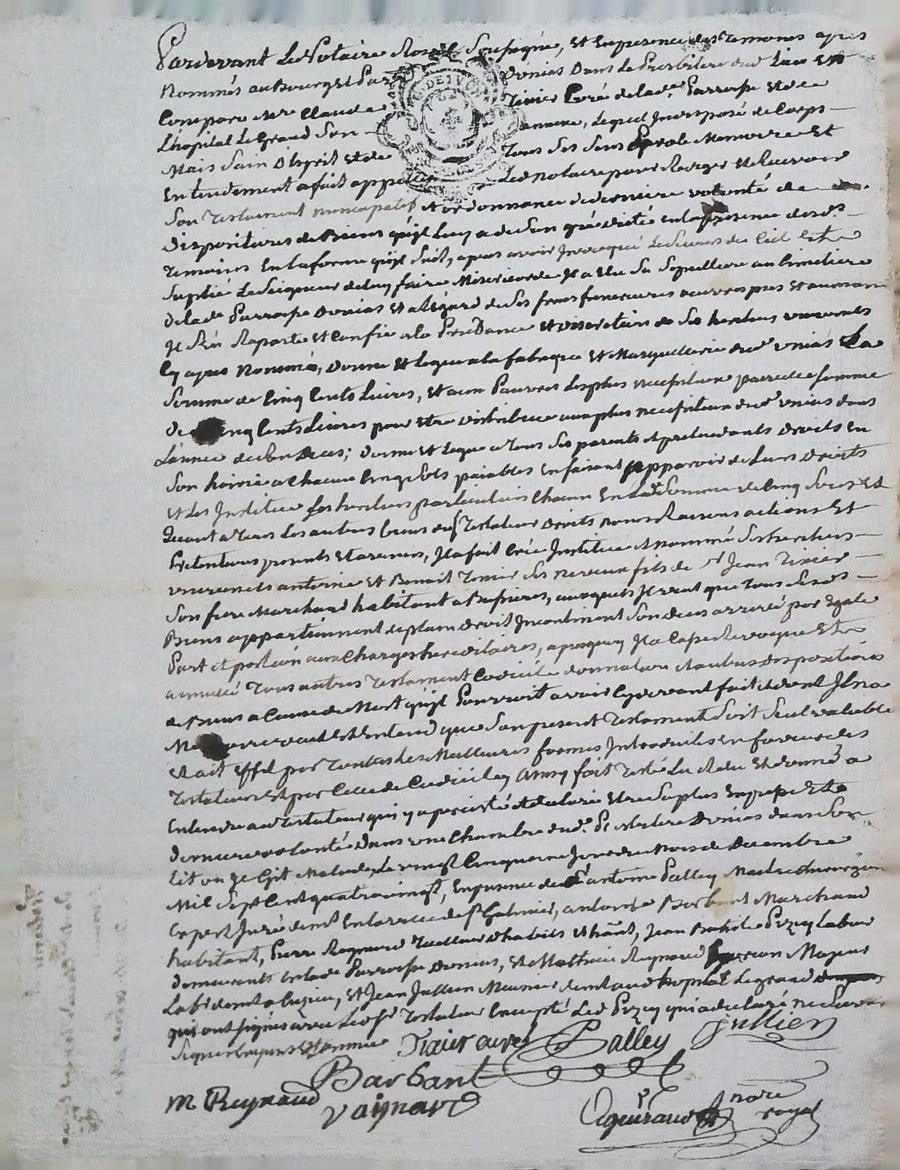 Pardevant Le Notaire Royal Soussigné, Et En presence des Temoins apres
Nommés au Bourg et Par Unias Dans Le Presbitere dud. Lieu Est
Comparu Mre Claude Tixier Curé de lad. Parroisse et de
L'hopital Le Grand Son annexe, Lequel Indisposé de Corps
Mais Sain d'Esprit et de Tous Ses Sens Parole Memoire Et
Entendement a fait appeller Led Notaire pour Rediger et Recevoir
Son Testament nuncupatif et ordonnance de derniere volonté de
dispositions de Biens qu'il Luy a de Son gré dicté en la presence desd.
Temoins En la forme qu'il Suit, apres avoir Invoqué Le Secours du Ciel Et
Suplié Le Seigneur de luy faire Misericorde Il a Elu Sa Sepulture au Cimetiere
de lad. Parroisse d'Unias et a l'Egard de Ses frais funeraires œuvres pies et aumones
Il S'En Raporte et Confie a la Prudence et discretion de Ses heritiers universels
Cy apres Nommés, Donne et Legue a la fabrique Et Marguillerie dud. Unias La
Somme de Cinq Cents Livres, et aux Pauvres Les plus necessiteux pareille Somme
De Cinq Cents Livres pour Etre distribuée aux plus necessiteux dud. Unias dans
L'année de Son Deces; donne et Legue a Tous Ses parents et pretendants Droits En
Son hoirie a Chacun Cinq Sols paiables En faisant apparoir de Leurs Droits
Et Les Institue Ses heritiers particuliers Chacun En lad. Somme de Cinq Sous, Et
Quant a Tous Les autres biens dud. Testateur Droits noms Raisons actions Et
Pretentions presents Et avenir, Il a fait Créé Institué et nommé Ses heritiers
universels antoine Et Benoit Tixier Ses neveux fils de Sr. Jean Tixier
Son frere Marchand habitant a auxquels Il veut que Tous Sesd.
Biens appartiennent de plain Droit Incontinent Son deces arrivé par Egale
Part et portion aux Charges hereditaires, a quoy Il a Cassé Revoqué Et
annullé Tous autres Testament Codicile donnation et autres dispositions
de Biens a Cause de Mort qu'il Pourroit avoir Cy devant fait et dont Il n'a
Memoire voulant et Entend que Son present Testament Soit Seul valable
Et ait Effet par Toutes Les Meilleures formes Introduites En faveur des
Testateurs et par Celle de Codicile, Ainsy fait Testé Lu Relu Et donné a
Entendre aud Testateur qui y a persisté et declaré Etre Sa plus Expresse Et
derniere volonté dans une Chambre dud. Presbitere d'Unias dans Son
Lit ou Il Git Malade, Le vingt Cinquieme Jour du Mois de Decembre
Mil Sept Cent quatre vingt, En presence de Sr. antoine Palley Maitre chirurgien
Expert Juré dem. En la ville de St. Galmier, antoine Barbant Marchand
habitant, Pierre Reynard Tailleur d'habits et Jean Labour
demeurants En lad. Parroisse d'Unias, et Mathieu Reynaud Maçon
Lab. dem. a Luzieu, et Jean Jullien Meunier dem. aud. hopital Le grand
qui ont Signés avec Led. Sr. Testateur Excepté Led. qui a declaré ne Savoir
Signer Enquis Et Sommé Tixier curé Palley Jullien
Barbant
M Reynaud Raynard
nore royal